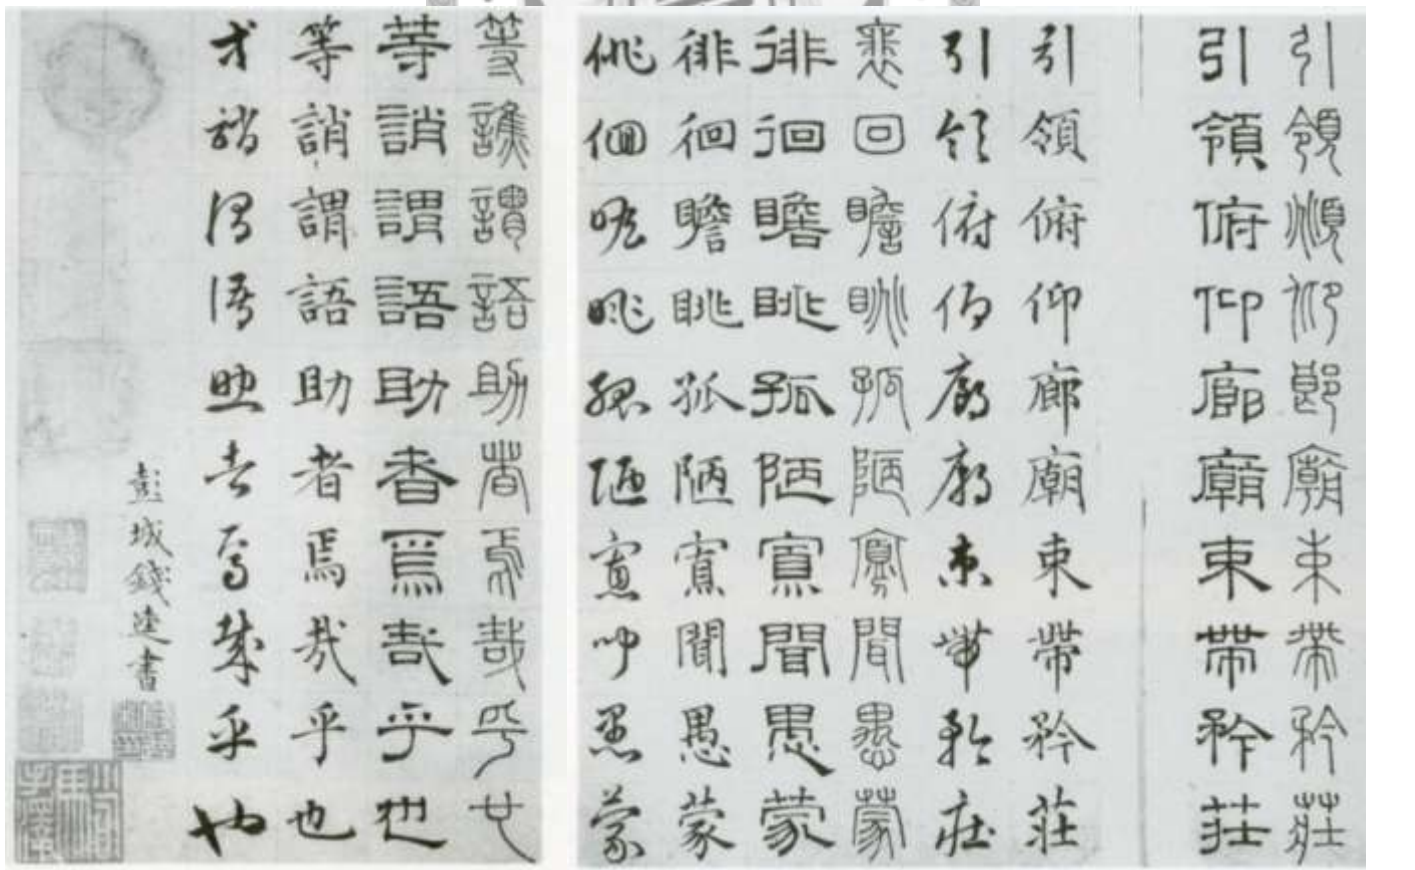 引領頫仰郎廟束帶矜莊
引領俯仰廊廟束帶矜莊
引領俯仰廊廟束帶矜莊
引領俯仰廊廟束帶矜莊
裵回瞻眺孤陋寡聞愚蒙
徘徊瞻眺孤陋寡聞愚蒙
徘徊瞻眺孤陋寡聞愚蒙
徘徊瞻眺孤陋寡聞愚蒙
等譙謂語助者焉哉乎也
等誚謂語助者焉哉乎也
等誚謂語助者焉哉乎也
等誚謂語助者焉哉乎也
彭城錢逵書